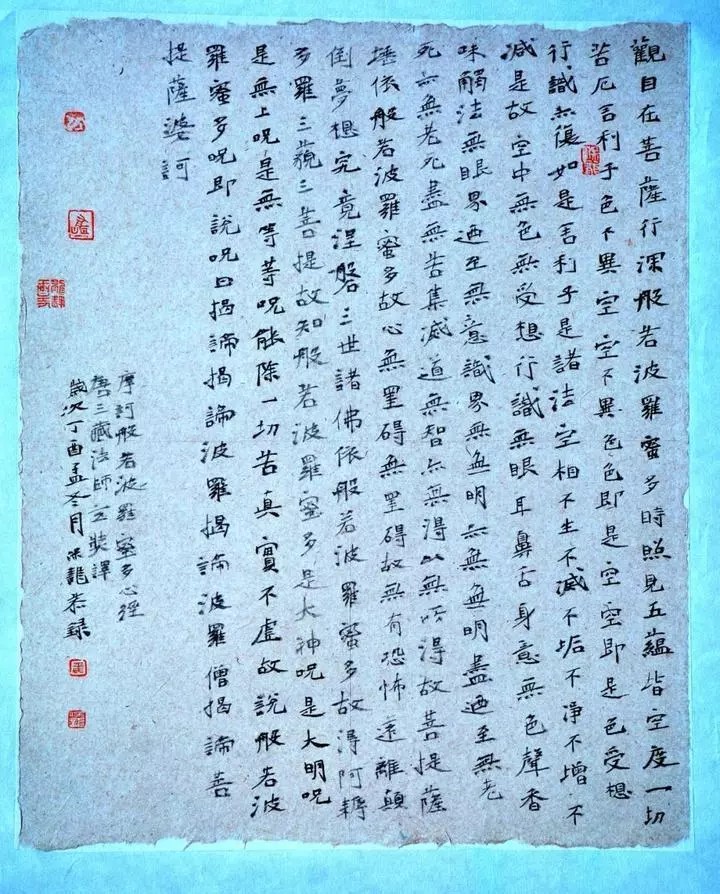 觀自在菩薩行深般若波羅蜜多時照見五蘊皆空度一切
苦厄舍利子色不異空空不異色色即是空空即是色受想
行識亦復如是舍利子是諸法空相不生不滅不垢不淨不增不
減是故空中無色無受想行識無眼耳鼻舌身意無色聲香
味觸法無眼界迺至無意識界無無明亦無無明盡迺至無老
死亦無老死盡無苦集滅道無智亦無得以無所得故菩提薩
埵依般若波羅蜜多故心無罣碍無罣碍故無有恐怖遠離顛
倒夢想究竟涅槃三世諸佛依般若波羅蜜多故得阿耨
多羅三藐三菩提故知般若波羅蜜多是大神呪是大明呪
是無上呪是無等等呪能除一切苦真實不虛故說般若波
羅蜜多呪即說呪曰揭諦揭諦波羅揭諦波羅僧揭諦菩
提薩婆訶
摩訶般若波羅蜜多心經
唐三藏法師玄奘譯
歲次丁酉孟冬月龍恭錄